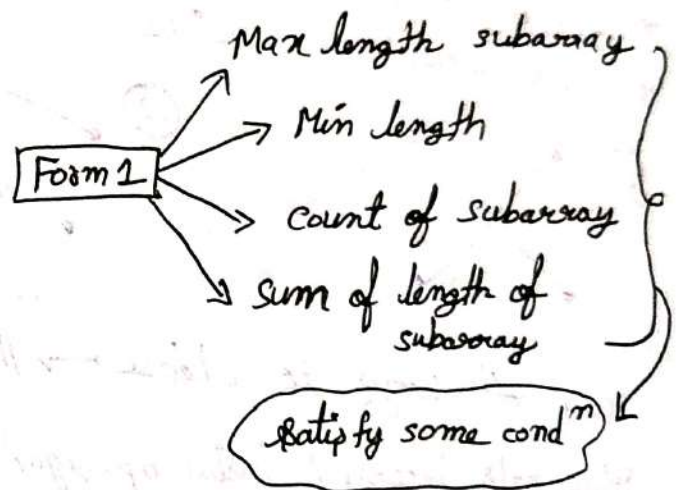 Max length subarray
Min length
Form 1
count of subarray
sum of length of
subarray
Satisfy some condⁿ